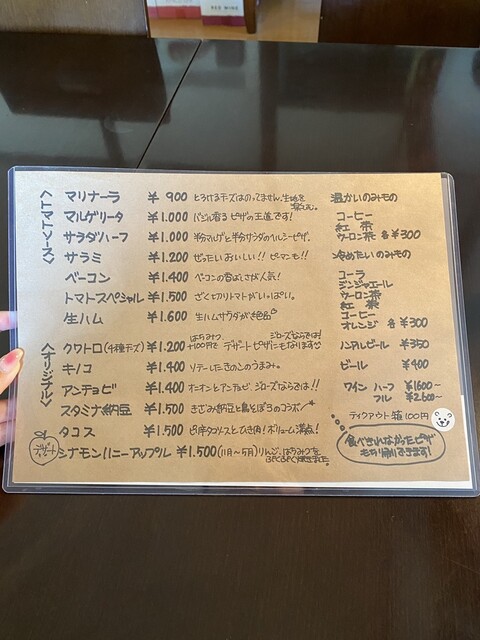 RED WINE
〈トマトソース〉
マリナーラ ¥900 とろけるチーズはのってません。生地を
マルゲリータ ¥1.000 バジル香る ピザの王道です!
サラダハーフ ¥1.000 半分マルゲと半分サラダのヘルシーピザ。
サラミ ¥1.200 ぜったいおいしい!! ピーマンも!!
ベーコン ¥1.400 ベーコンの香ばしさが人気!
トマトスペシャル ¥1.500 ざく切りトマトがいっぱい。
生ハム ¥1.600 生ハムサラダが絶品
〈オリジナル〉
クワトロ(4種チーズ) ¥1.200 はちみつ +100円で デザートピザにもなります
ジローズならでは!
キノコ ¥1.400 ソテーしたきのこのうまみ。
アンチョビ ¥1.400 オニオンとアンチョビ ジローズならでは!!
スタミナ納豆 ¥1.500 きざみ納豆と鳥そぼろのコラボ
タコス ¥1.500 タコソースとひき肉!ボリューム満点!
シナモンハニーアップル ¥1.500 (11月〜5月)りんご、はちみつを
温かいのみもの
コーヒー
紅茶
ウーロン茶 各¥300
冷めたいのみもの
コーラ
ジンジャエール
ウーロン茶
紅茶
コーヒー
オレンジ 各¥300
ノンアルビール ¥350
ビール ¥400
ワイン ハーフ ¥1600-
フル ¥2.600-
テイクアウト箱100円
食べきれなかったピザ
もち帰りできます!